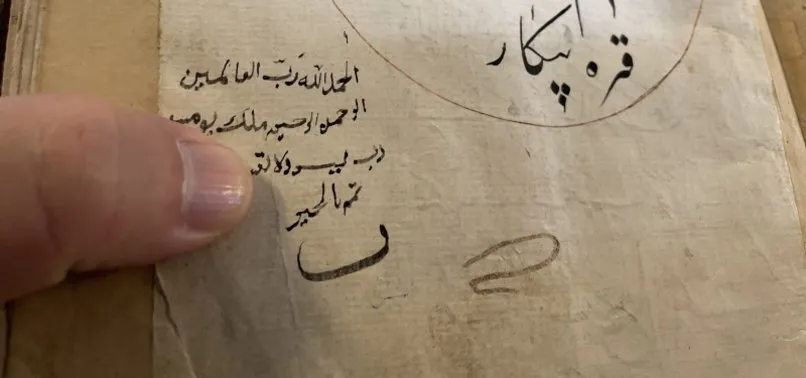 قره پیکار
الحمد الله رب العالمين
الرحمن الرحيم ملك يوم
رب يسر ولا
تمم بالخير
ن